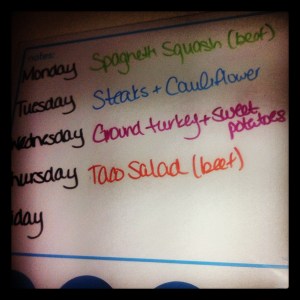 notes:
Monday Spaghetti Squash (beef)
Tuesday Steaks + Cauliflower
Wednesday Ground turkey + sweet
potatoes
hursday Taco Salad (beef)
day